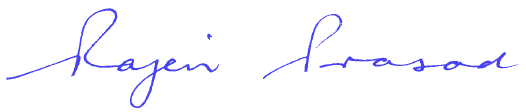 Rajeev Prasad